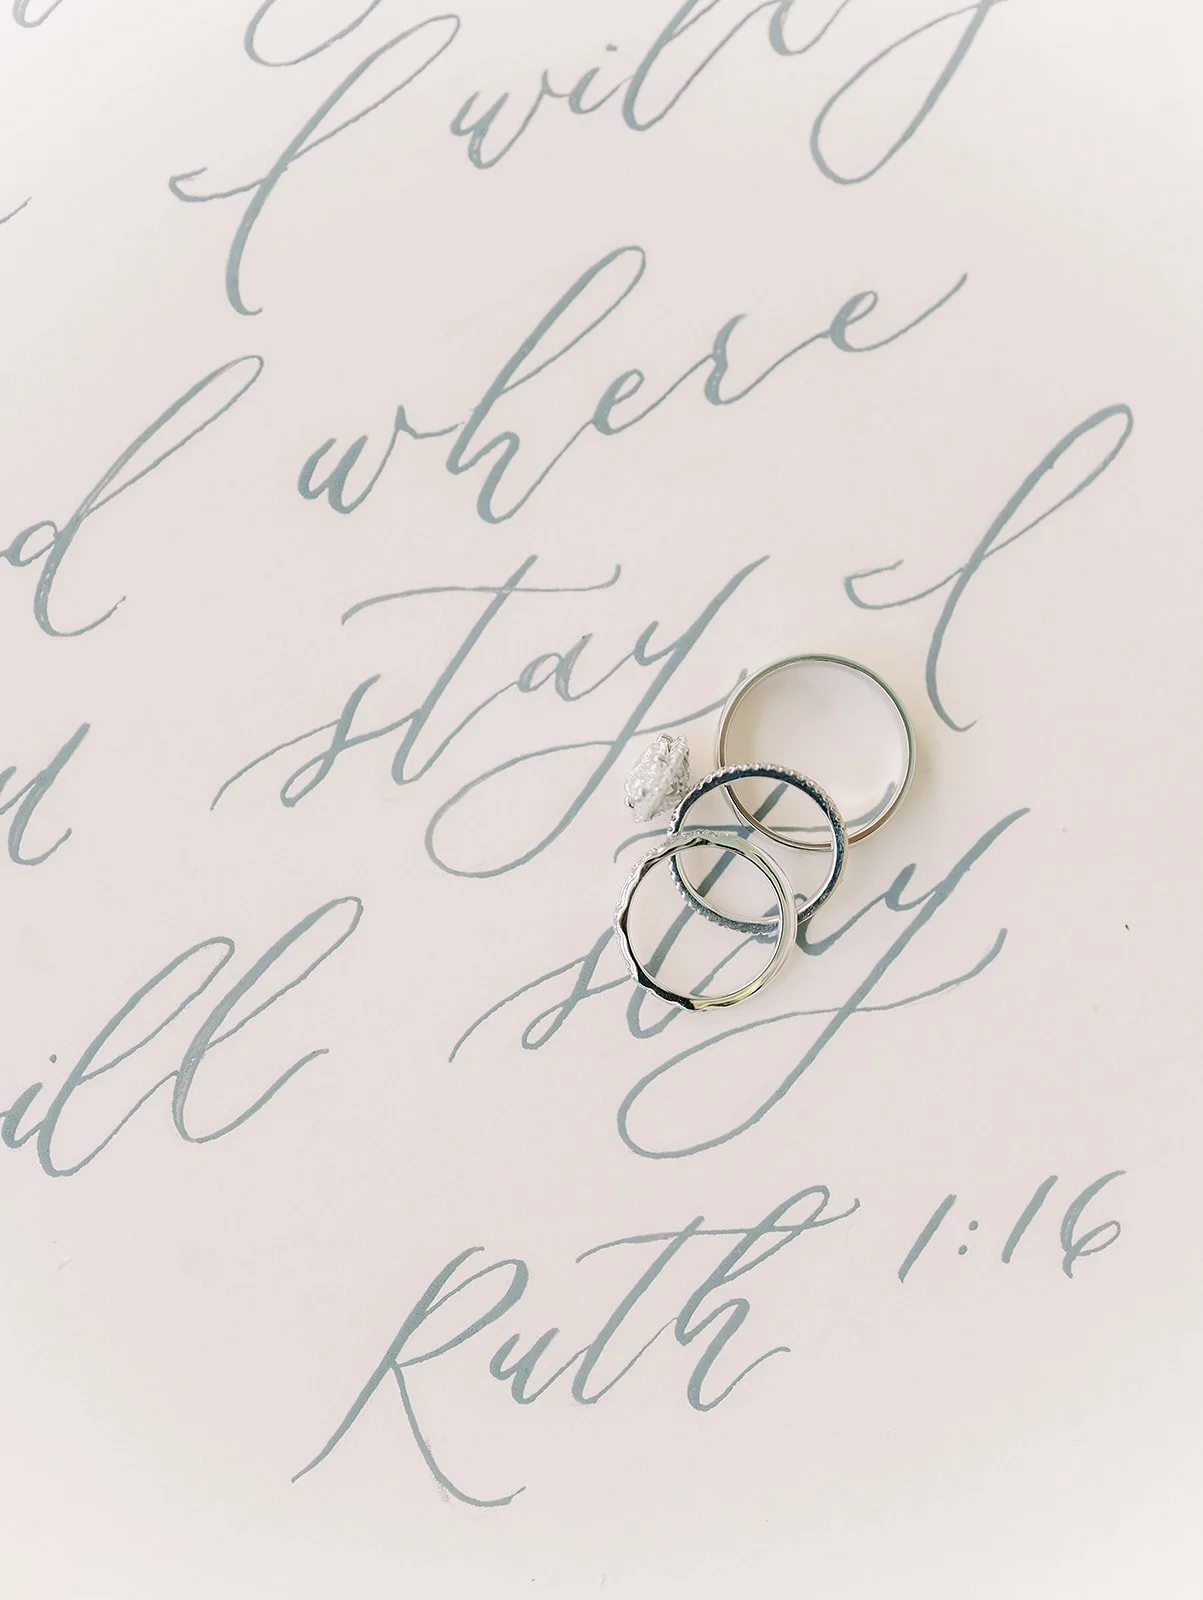 I will g
d where
u stay I
ill stay
Ruth 1:16